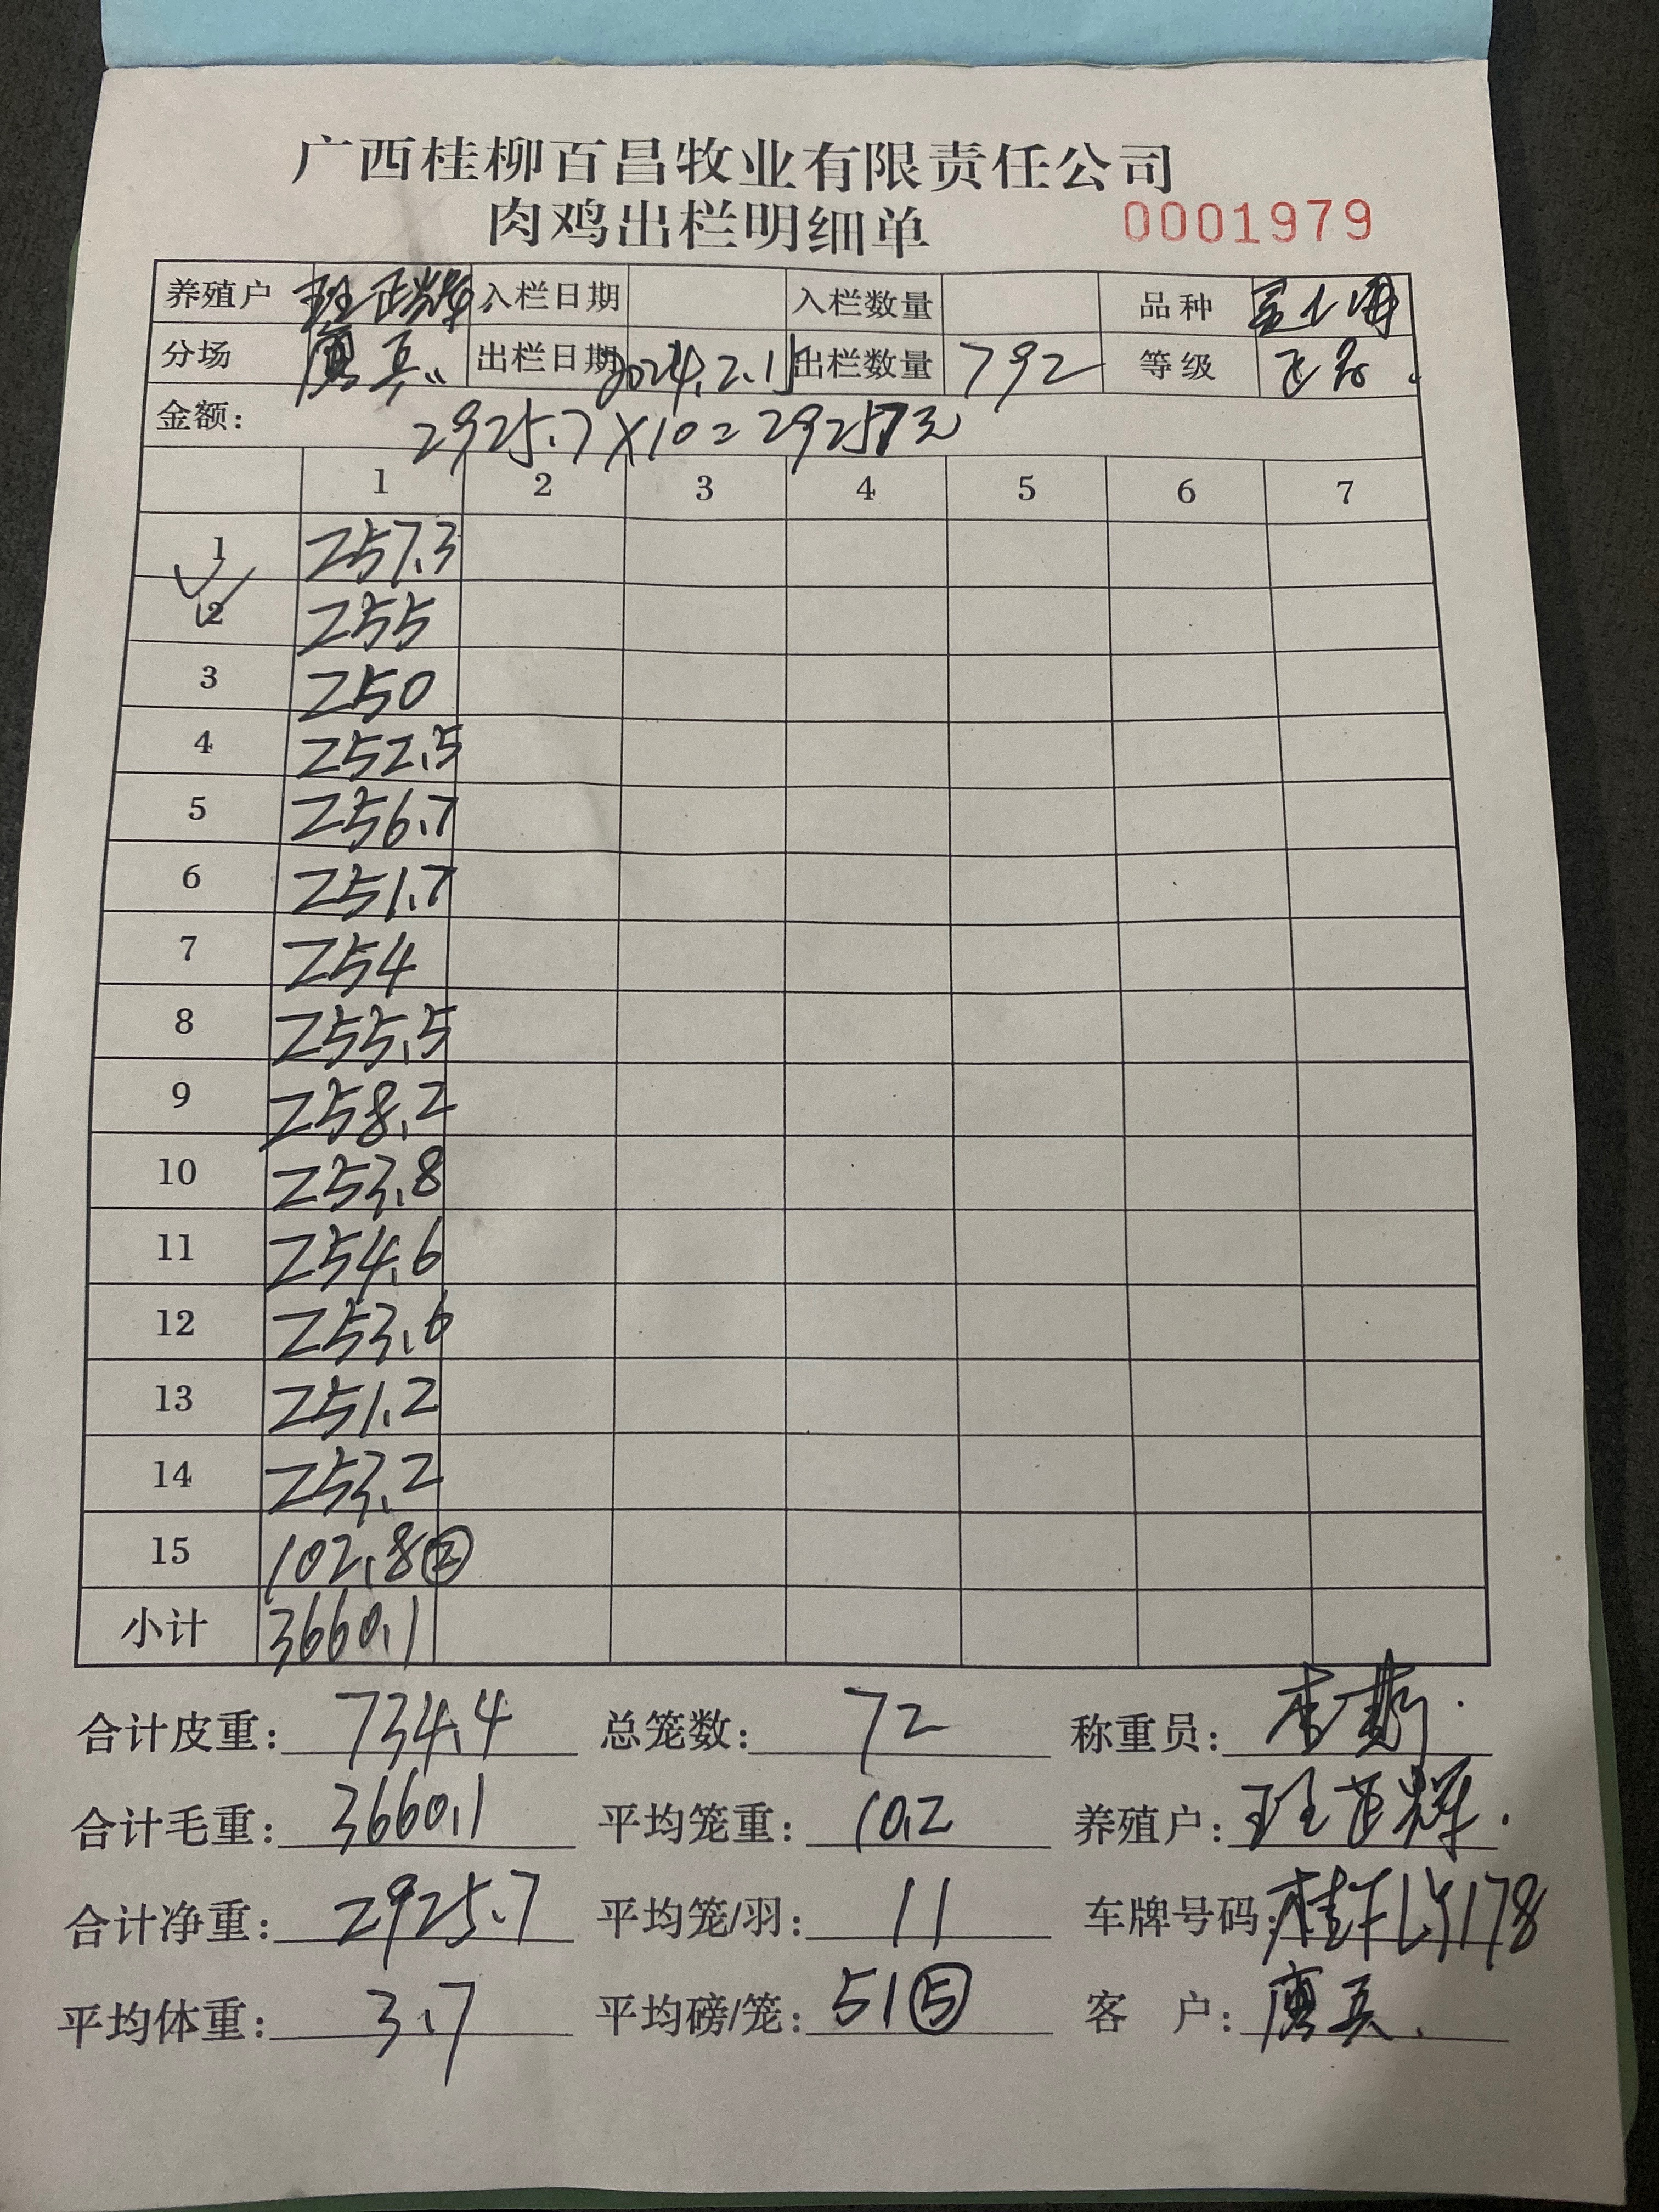 广西桂柳百昌牧业有限责任公司
肉鸡出栏明细单 0001979
养殖户 班正辉 入栏日期 入栏数量 品种
分场 唐兵 出栏日期 2024.2.15 出栏数量 792 等级
金额: 2925.7×10=29257元
1 2 3 4 5 6 7
1 257.3
2 255
3 250
4 252.5
5 256.7
6 251.7
7 254
8 255.5
9 258.2
10 253.8
11 254.6
12 253.6
13 251.2
14 253.2
15 102.8②
小计 3660.1
合计皮重: 734.4 总笼数: 72 称重员:
合计毛重: 3660.1 平均笼重: 10.2 养殖户: 班正辉.
合计净重: 2925.7 平均笼/羽: 11 车牌号码:
平均体重: 3.7 平均磅/笼: 51⑤ 客 户: 唐兵.